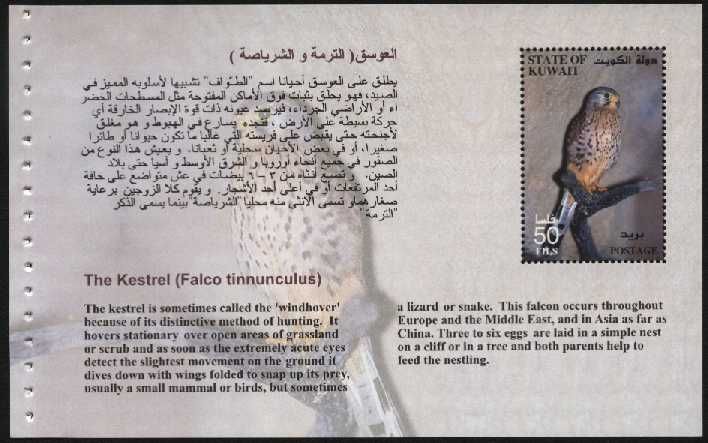 العوسق( الترمة و الشرياصة )
يطلق على العوسق أحيانا اسم "الطواف" تشبيها لأسلوبه المميز في
الصيد، فهو يحلق بثبات فوق الأماكن المفتوحة مثل المسطحات الخضر
اء أو الأراضي الجرداء، فيرصد عيونه ذات قوة الإبصار الخارقة أي
حركة بسيطة على الأرض ، فتجده يسارع في الهبوط و هو مغلق
لأجنحته حتى يقبض على فريسته التي غالبا ما تكون حيوانا أو طائرا
صغيرا، أو في بعض الأحيان سحلية أو ثعبانا. و يعيش هذا النوع من
الصقور في جميع أنحاء أوروبا و الشرق الأوسط و آسيا حتى بلاد
الصين. و تضع أنثاه من ٣ – ٦ بيضات في عش متواضع على حافة
أحد المرتفعات أو في أعلى أحد الأشجار. و يقوم كلا الزوجين برعاية
صغارهما و تسمى الأنثى منه محليا "الشرياصة" بينما يسمى الذكر
"الترمة"
STATE OF دولة الكويت
KUWAIT
فلسا
50 بريد
FILS POSTAGE
The Kestrel (Falco tinnunculus)
The kestrel is sometimes called the 'windhover'
because of its distinctive method of hunting. It
hovers stationary over open areas of grassland
or scrub and as soon as the extremely acute eyes
detect the slightest movement on the ground it
dives down with wings folded to snap up its prey,
usually a small mammal or birds, but sometimes
a lizard or snake. This falcon occurs throughout
Europe and the Middle East, and in Asia as far as
China. Three to six eggs are laid in a simple nest
on a cliff or in a tree and both parents help to
feed the nestling.